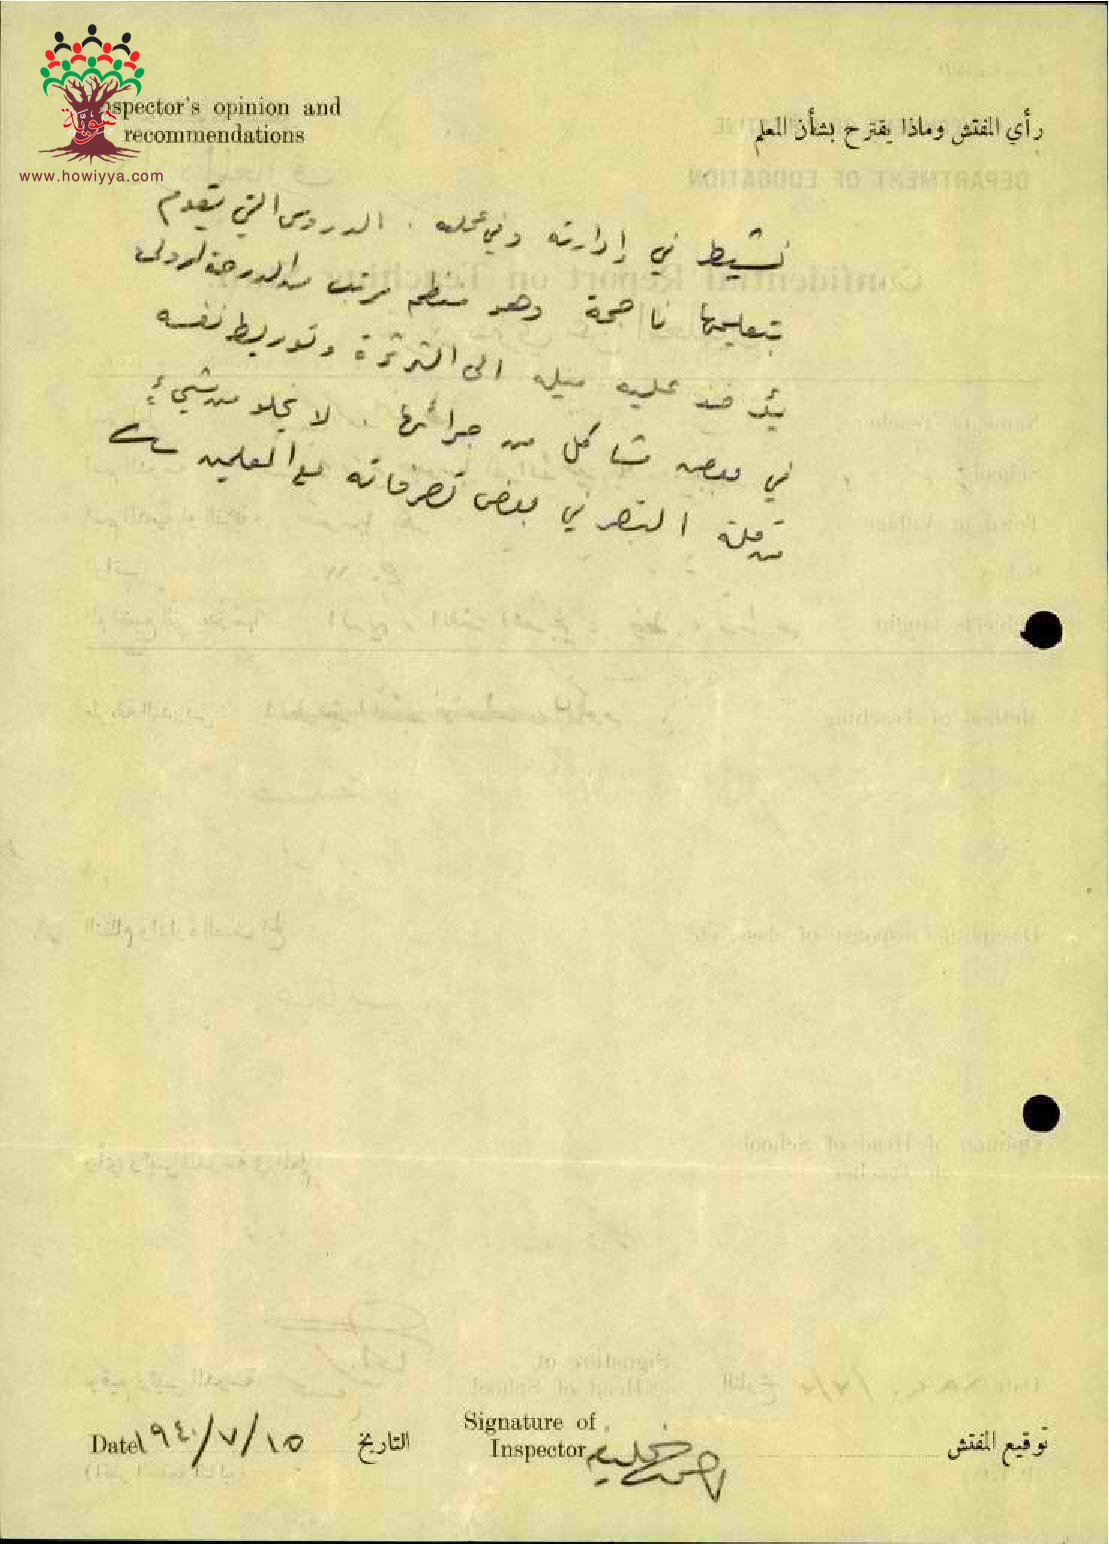 هوية
www.howiyya.com
Inspector's opinion and
recommendations
رأي المفتش وماذا يقترح بشأن المعلم
نشيط في إدارته وفي عمله . الدروس التي يقوم
بتعليمها ناجحة وهو منظم مرتب من الدرجة الاولى
يؤخذ عليه ميله الى الثرثرة وتوريط نفسه
في بعض مشاكل من جرائها لا يخلو من شيء
من قلة التبصر في بعض تصرفاته مع المعلمين
Signature of
Inspector
توقيع المفتش
Date ١٥/٧/١٩٤٠ التاريخ